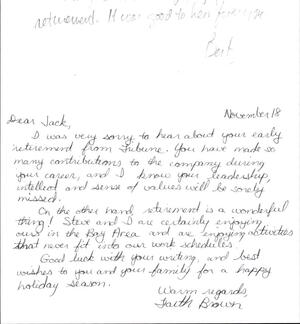 retirement. It was good to hear from you
Best,
November 18
Dear Jack,
I was very sorry to hear about your early
retirement from Tribune. You have made so
many contributions to the company during
your career, and I know your leadership,
intellect and sense of values will be sorely
missed.
On the other hand, retirement is a wonderful
thing! Steve and I are certainly enjoying
ours in the Bay Area and are enjoying activities
that never fit into our work schedules.
Good luck with your writing, and best
wishes to you and your family for a happy
holiday season.
Warm regards,
Faith Brown